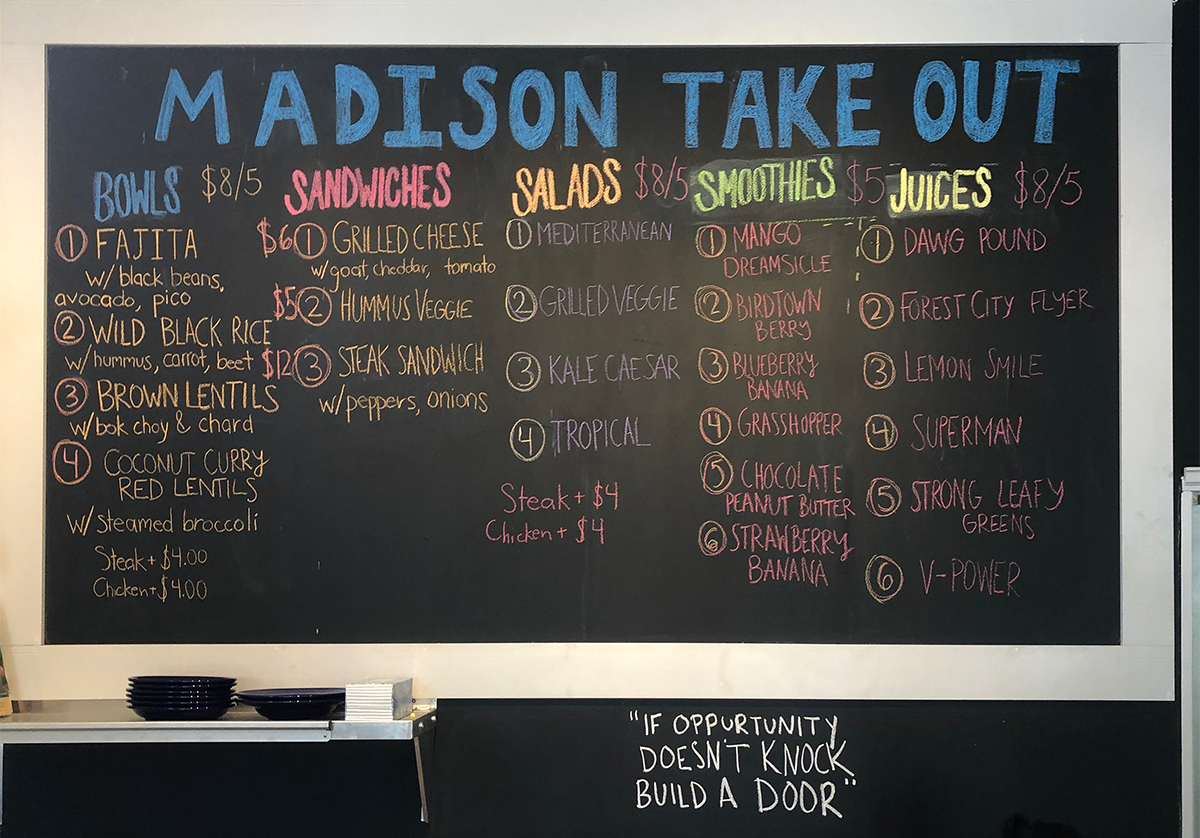 MADISON TAKE OUT
BOWLS $8/5
① FAJITA
w/ black beans,
avocado, pico
② WILD BLACK RICE
w/ hummus, carrot, beet
③ BROWN LENTILS
w/ bok choy & chard
④ COCONUT CURRY
RED LENTILS
w/ steamed broccoli
Steak + $4.00
Chicken + $4.00
SANDWICHES
$6 ① GRILLED CHEESE
w/ goat, cheddar, tomato
$5 ② HUMMUS VEGGIE
$12 ③ STEAK SANDWICH
w/ peppers, onions
SALADS $8/5
① MEDITERRANEAN
② GRILLED VEGGIE
③ KALE CAESAR
④ TROPICAL
Steak + $4
Chicken + $4
SMOOTHIES $5
① MANGO
DREAMSICLE
② BIRDTOWN
BERRY
③ BLUEBERRY
BANANA
④ GRASSHOPPER
⑤ CHOCOLATE
PEANUT BUTTER
⑥ STRAWBERRY
BANANA
JUICES $8/5
① DAWG POUND
② FOREST CITY FLYER
③ LEMON SMILE
④ SUPERMAN
⑤ STRONG LEAFY
GREENS
⑥ V-POWER
"IF OPPURTUNITY
DOESN'T KNOCK
BUILD A DOOR"